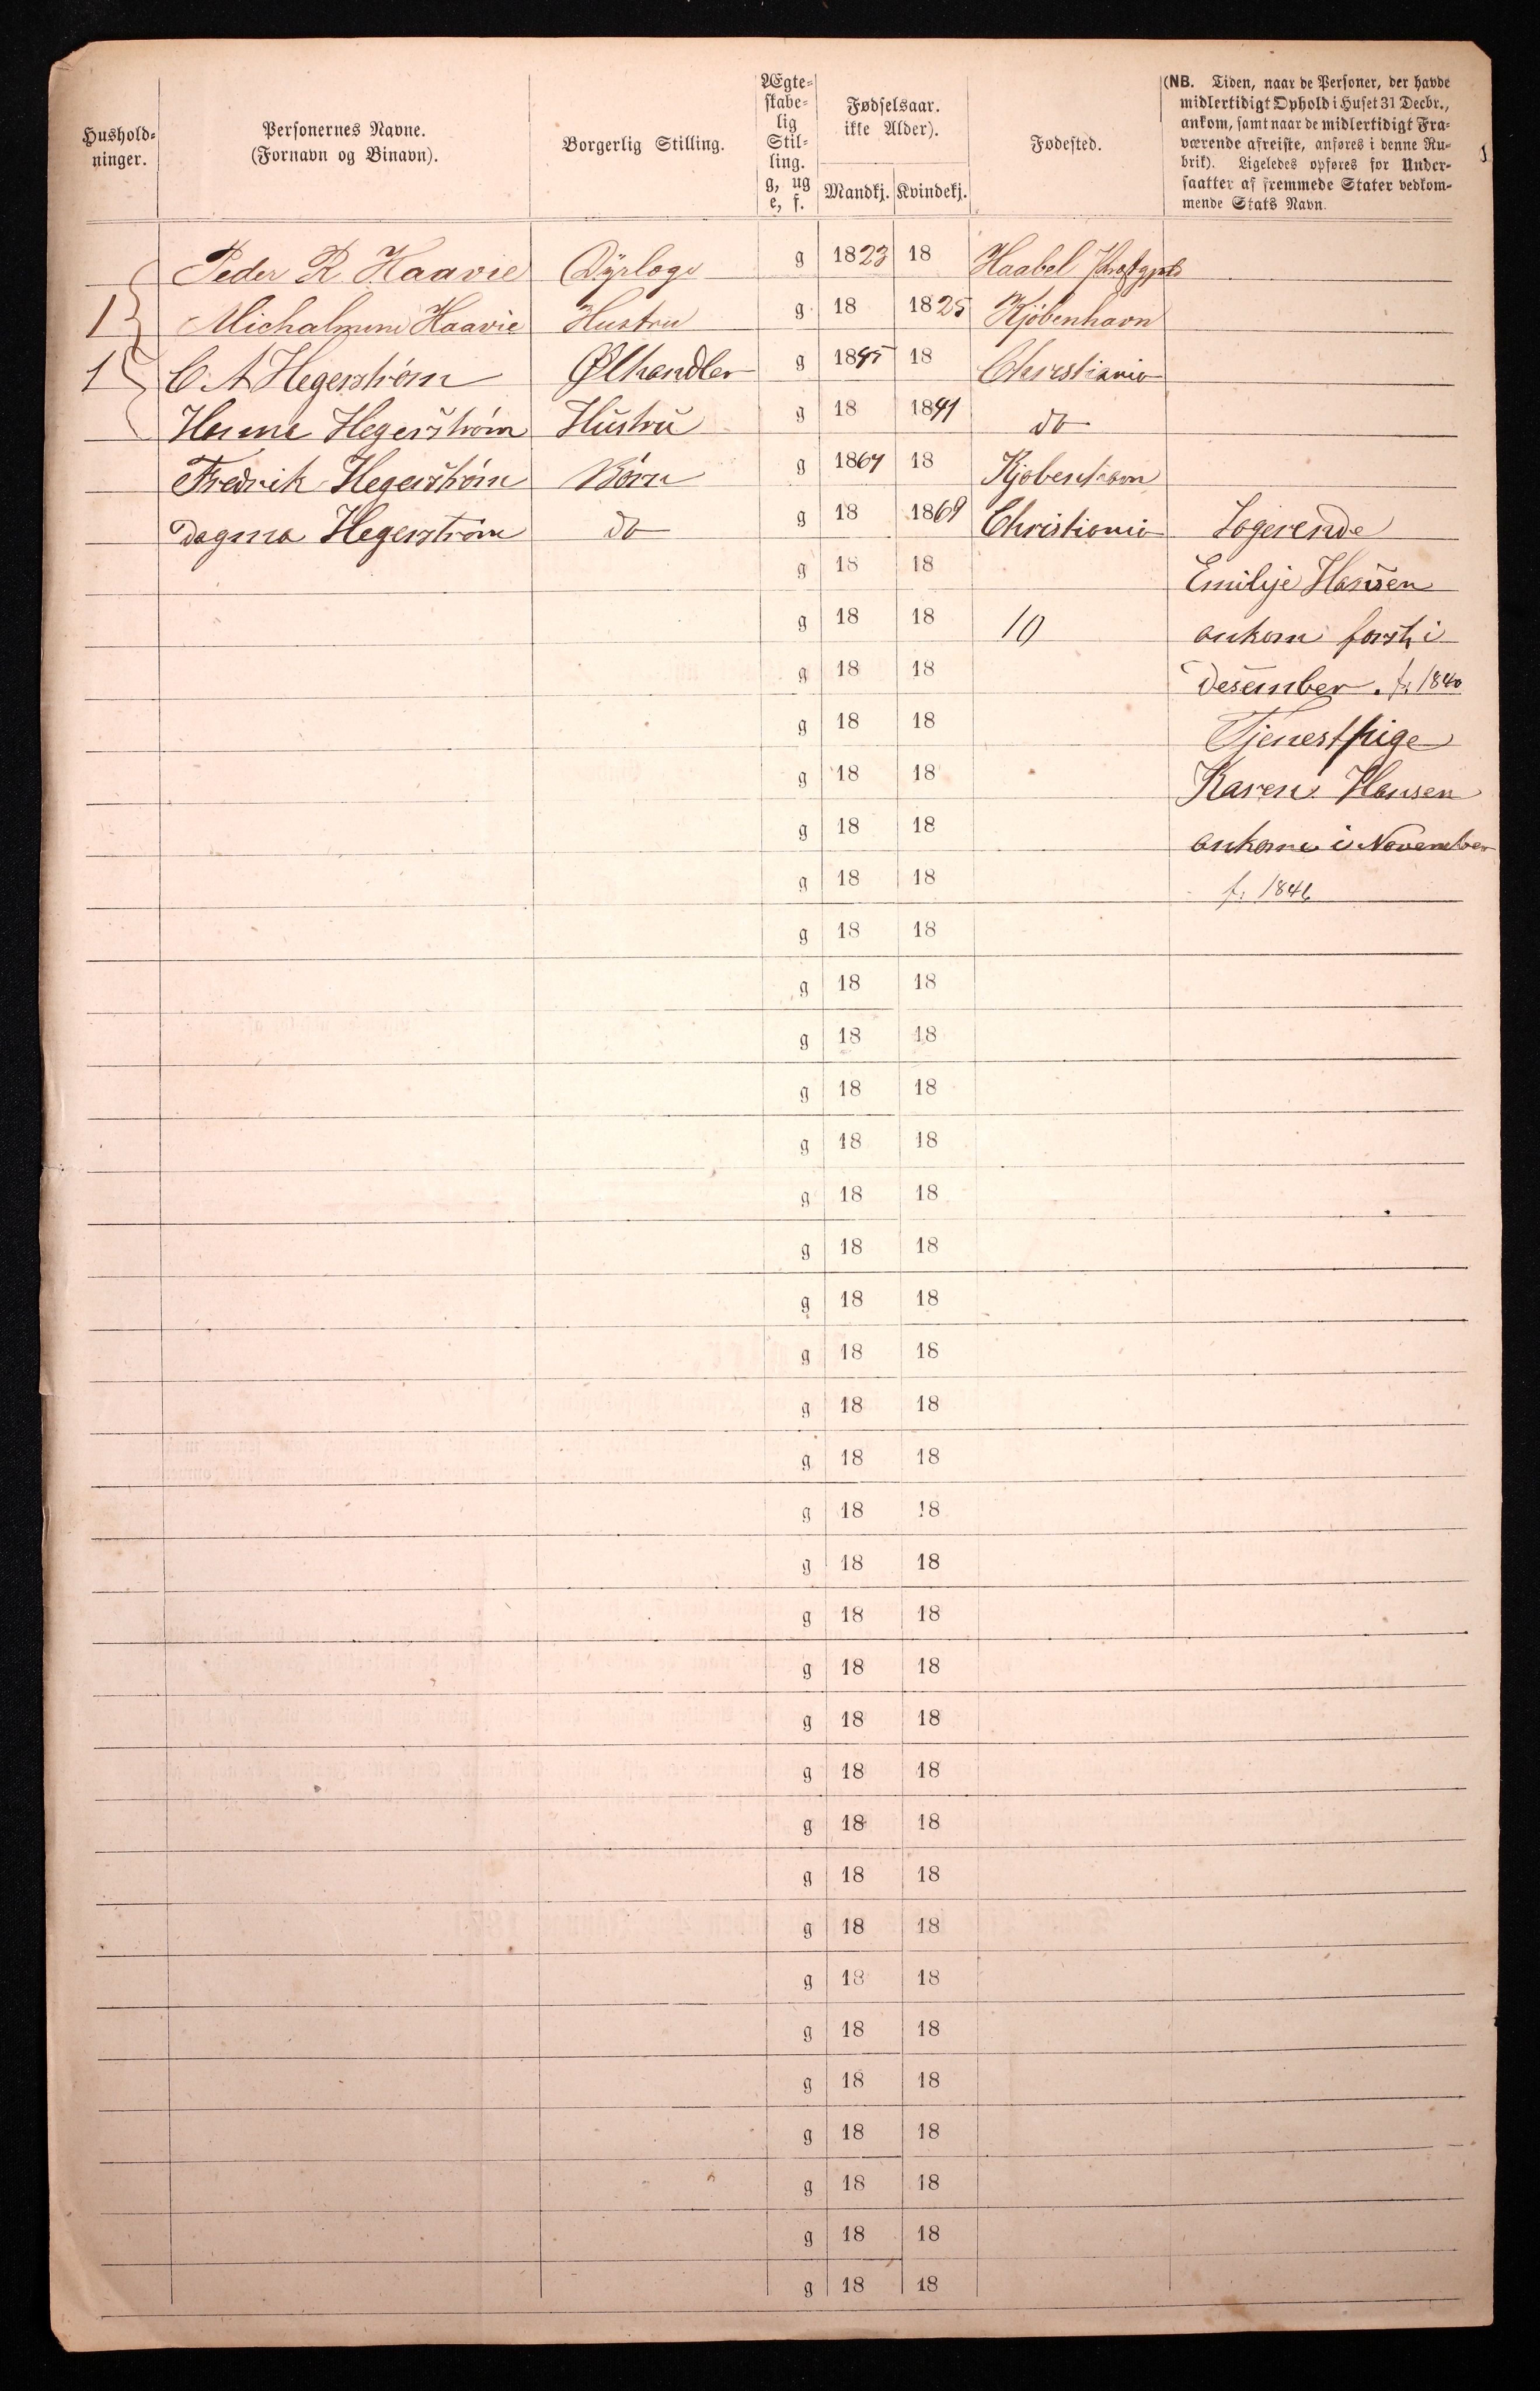 Hushold-
ninger.
Personernes Navne.
(Fornavn og Binavn).
Borgerlig Stilling.
Ægte-
skabe-
lig
Stil-
ling.
g, ug
e, f.
Fødselsaar.
ikke Alder).
Mandkj. Kvindekj.
Fødested.
(NB. Tiden, naar de Personer, der havde
midlertidigt Ophold i Huset 31 Decbr.,
ankom, samt naar de midlertidigt Fra-
værende afreiste, anføres i denne Ru-
brik). Ligeledes opføres for Under-
saatter af fremmede Stater vedkom-
mende Stats Navn.
Peder R Haavie g 1823 18 Haabel
1 Haavie Hustru g 18 1825 Kjöbenhavn
1 C. A Hegerström Ølhandler g 1845 18 Christiania
Hanne Hegerström Hustru g 18 1841 do
Fredrik Hegerström Börn g 1867 18 Kjobenhavn
Dagma Hegerström do g 18 1869 Christiania Logerende
g 18 18 Emilije Hansen
g 18 18 10 ankom först i
g 18 18 Desember. f. 1840
g 18 18 Tjenestpige
g 18 18 Karen Hansen
g 18 18 ankom i November
g 18 18 f. 1846
g 18 18
g 18 18
g 18 18
g 18 18
g 18 18
g 18 18
g 18 18
g 18 18
g 18 18
g 18 18
g 18 18
g 18 18
g 18 18
g 18 18
g 18 18
g 18 18
g 18 18
g 18 18
g 18 18
g 18 18
g 18 18
g 18 18
g 18 18
g 18 18
g 18 18
g 18 18
g 18 18